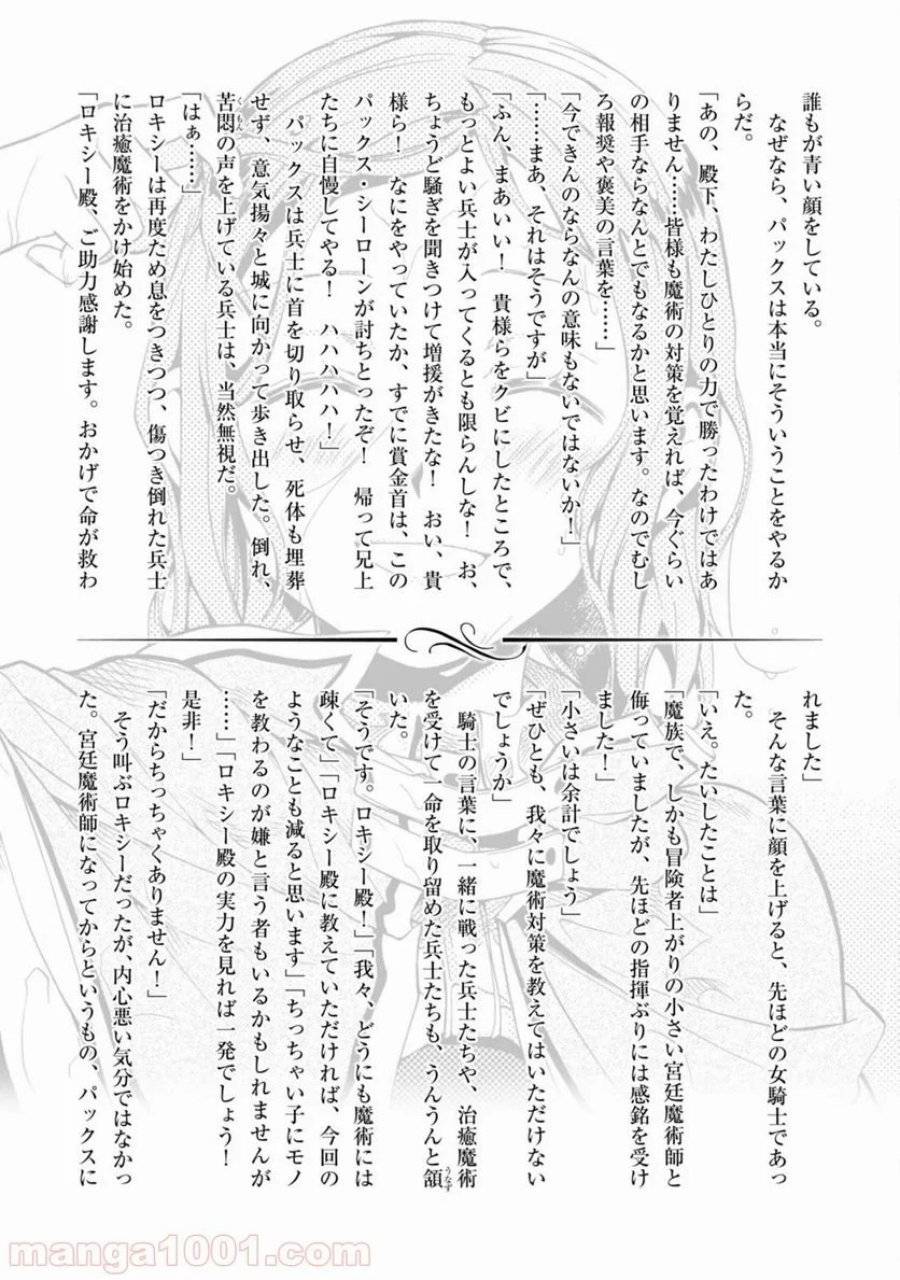 誰もが青い顔をしている。
なぜなら、パックスは本当にそういうことをやるか
らだ。
「あの、殿下、わたしひとりの力で勝ったわけではあ
りません……皆様も魔術の対策を覚えれば、今ぐらい
の相手ならなんとでもなるかと思います。なのでむし
ろ報奨や褒美の言葉を……」
「今できんのならなんの意味もないではないか！」
「……まあ、それはそうですが」
「ふん、まあいい！　貴様らをクビにしたところで、
もっとよい兵士が入ってくるとも限らんしな！　お、
ちょうど騒ぎを聞きつけて増援がきたな！　おい、貴
様ら！　なにをやっていたか、すでに賞金首は、この
パックス・シーローンが討ちとったぞ！　帰って兄上
たちに自慢してやる！　ハハハハ！」
パックスは兵士に首を切り取らせ、死体も埋葬
せず、意気揚々と城に向かって歩き出した。倒れ、
苦悶の声を上げている兵士は、当然無視だ。
くもん
「はぁ……」
ロキシーは再度ため息をつきつつ、傷つき倒れた兵士
に治癒魔術をかけ始めた。
「ロキシー殿、ご助力感謝します。おかげで命が救わ
れました」
そんな言葉に顔を上げると、先ほどの女騎士であっ
た。
「いえ。たいしたことは」
「魔族で、しかも冒険者上がりの小さい宮廷魔術師と
侮っていましたが、先ほどの指揮ぶりには感銘を受け
ました！」
「小さいは余計でしょう」
「ぜひとも、我々に魔術対策を教えてはいただけない
でしょうか」
騎士の言葉に、一緒に戦った兵士たちや、治癒魔術
を受けて一命を取り留めた兵士たちも、うんうんと頷
うなず
いた。
「そうです。ロキシー殿！」「我々、どうにも魔術には
疎くて」「ロキシー殿に教えていただければ、今回の
ようなことも減ると思います」「ちっちゃい子にモノ
を教わるのが嫌と言う者もいるかもしれませんが
……」「ロキシー殿の実力を見れば一発でしょう！
是非！」
「だからちっちゃくありません！」
そう叫ぶロキシーだったが、内心悪い気分ではなかっ
た。宮廷魔術師になってからというもの、パックスに
manga1001.com